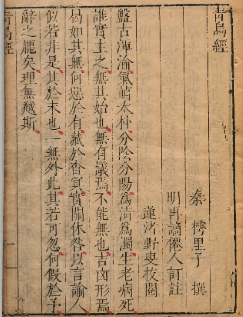 青烏經
秦 樗里子 撰
明 再謫僊人訂註
野叟校閱
盤古渾淪氣萌太朴分陰分陽為清為濁生老病死
誰實主之無其始也無有議焉不能無也吉凶形焉
曷如其無何惡於有藏於杳冥實關休咎以言諭人
似若非是其於末也一無外此其若可忽何假於予
辭之龐矣理無越斯
青烏經